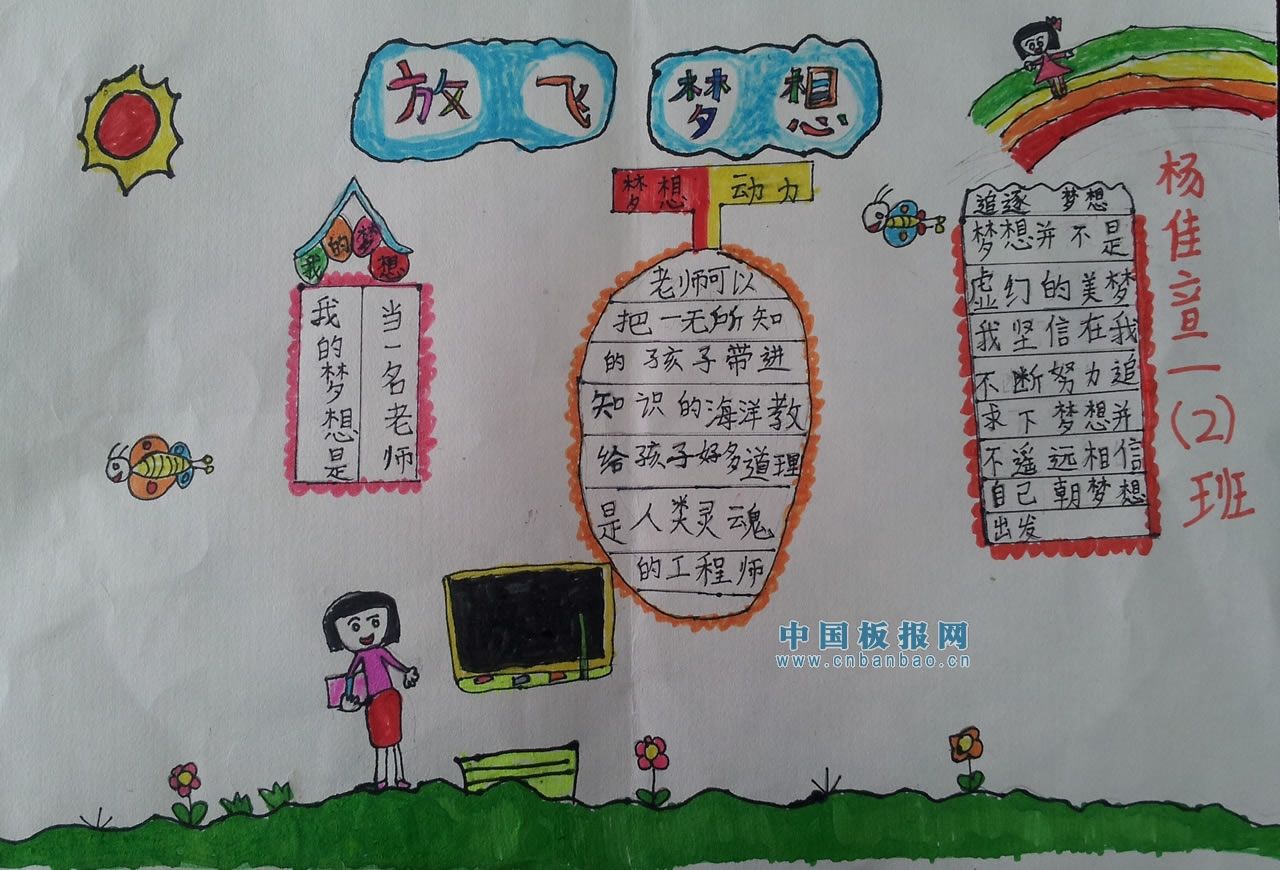 放飞 梦想
我的梦想
我的梦想是
当一名老师
梦想 动力
老师可以
把一无所知
的孩子带进
知识的海洋教
给孩子好多道理
是人类灵魂
的工程师
追逐 梦想
梦想并不是
虚幻的美梦
我坚信在我
不断努力追
求下梦想并
不遥远相信
自己朝梦想
出发
杨佳音一(2)班
中国板报网
www.cnbanbao.cn